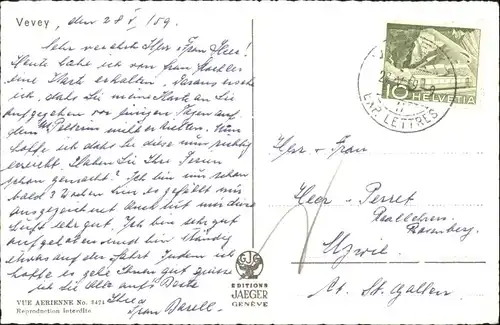 Vevey, den 28 V /59.
Sehr verehrte Herr & Frau Heer!
Heute habe ich von Frau
eine Karte erhalten. Daraus
ich, dass Sie meine Karte an Sie
aufgegeben vor einigen Tagen auf
dem Mt Pelerin nicht erhielten. Nun
hoffe ich dass Sie diese nun richtig
erreicht. Haben Sie Ihre Ferien
schon gemacht? Ich bin nun schon
bald 3 Wochen hier es gefällt mir
ausgezeichnet
Luft sehr gut. Ich bin sehr gut
aufgehoben und bin ständig
etwas auf der Fahrt. Indem ich
hoffe es gehe Ihnen gut grüsse
ich Sie alle aufs Beste
Ihre
Frau Barell.
VUE AERIENNE No. 7474
Reproduction interdite
EDITIONS
JAEGER
GENÈVE
10 HELVETIA
EXP. LETTRES
Herr & Frau
Heer - Perret
Rosenberg
Uzwil
Kt. St. Gallen